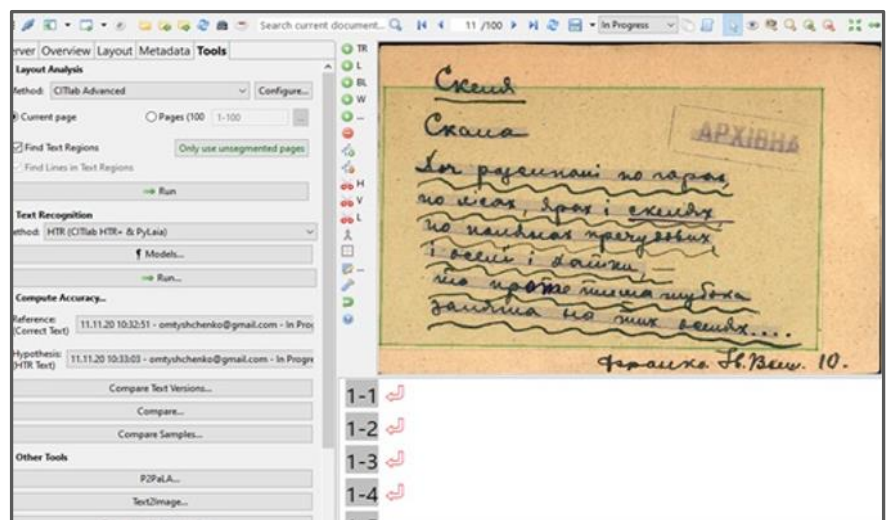 Search current document...
11 /100
In Progress
rver Overview Layout Metadata Tools
Layout Analysis
Method: CITlab Advanced
Configure...
Current page
Pages (100
1-100
...
Find Text Regions
Only use unsegmented pages
Find Lines in Text Regions
Run
Text Recognition
ethod: HTR (CITlab HTR+ & PyLaia)
Models...
Run...
Compute Accuracy...
Reference:
(Correct Text)
11.11.20 10:32:51 - omtyshchenko@gmail.com - In Prog
Hypothesis:
(HTR Text)
11.11.20 10:33:03 - omtyshchenko@gmail.com - In Progre
Compare Text Versions...
Compare...
Compare Samples...
Other Tools
P2PaLA...
Text2Image...
TR
L
BL
W
...
H
V
L
...
Скеля
Скала
АРХІВНА
Хоч розсипані по горах,
по лісах, ярах і скелях
по полянах пречудових
і оселі і хатки, —
то проте пітьма глубока
залягла на тих оселях....
Франко. Ів. Виш. 10.
1-1
1-2
1-3
1-4